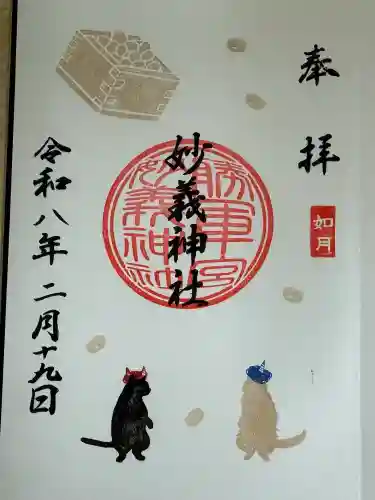 奉拝
如月
妙義神社
令和八年二月十九日